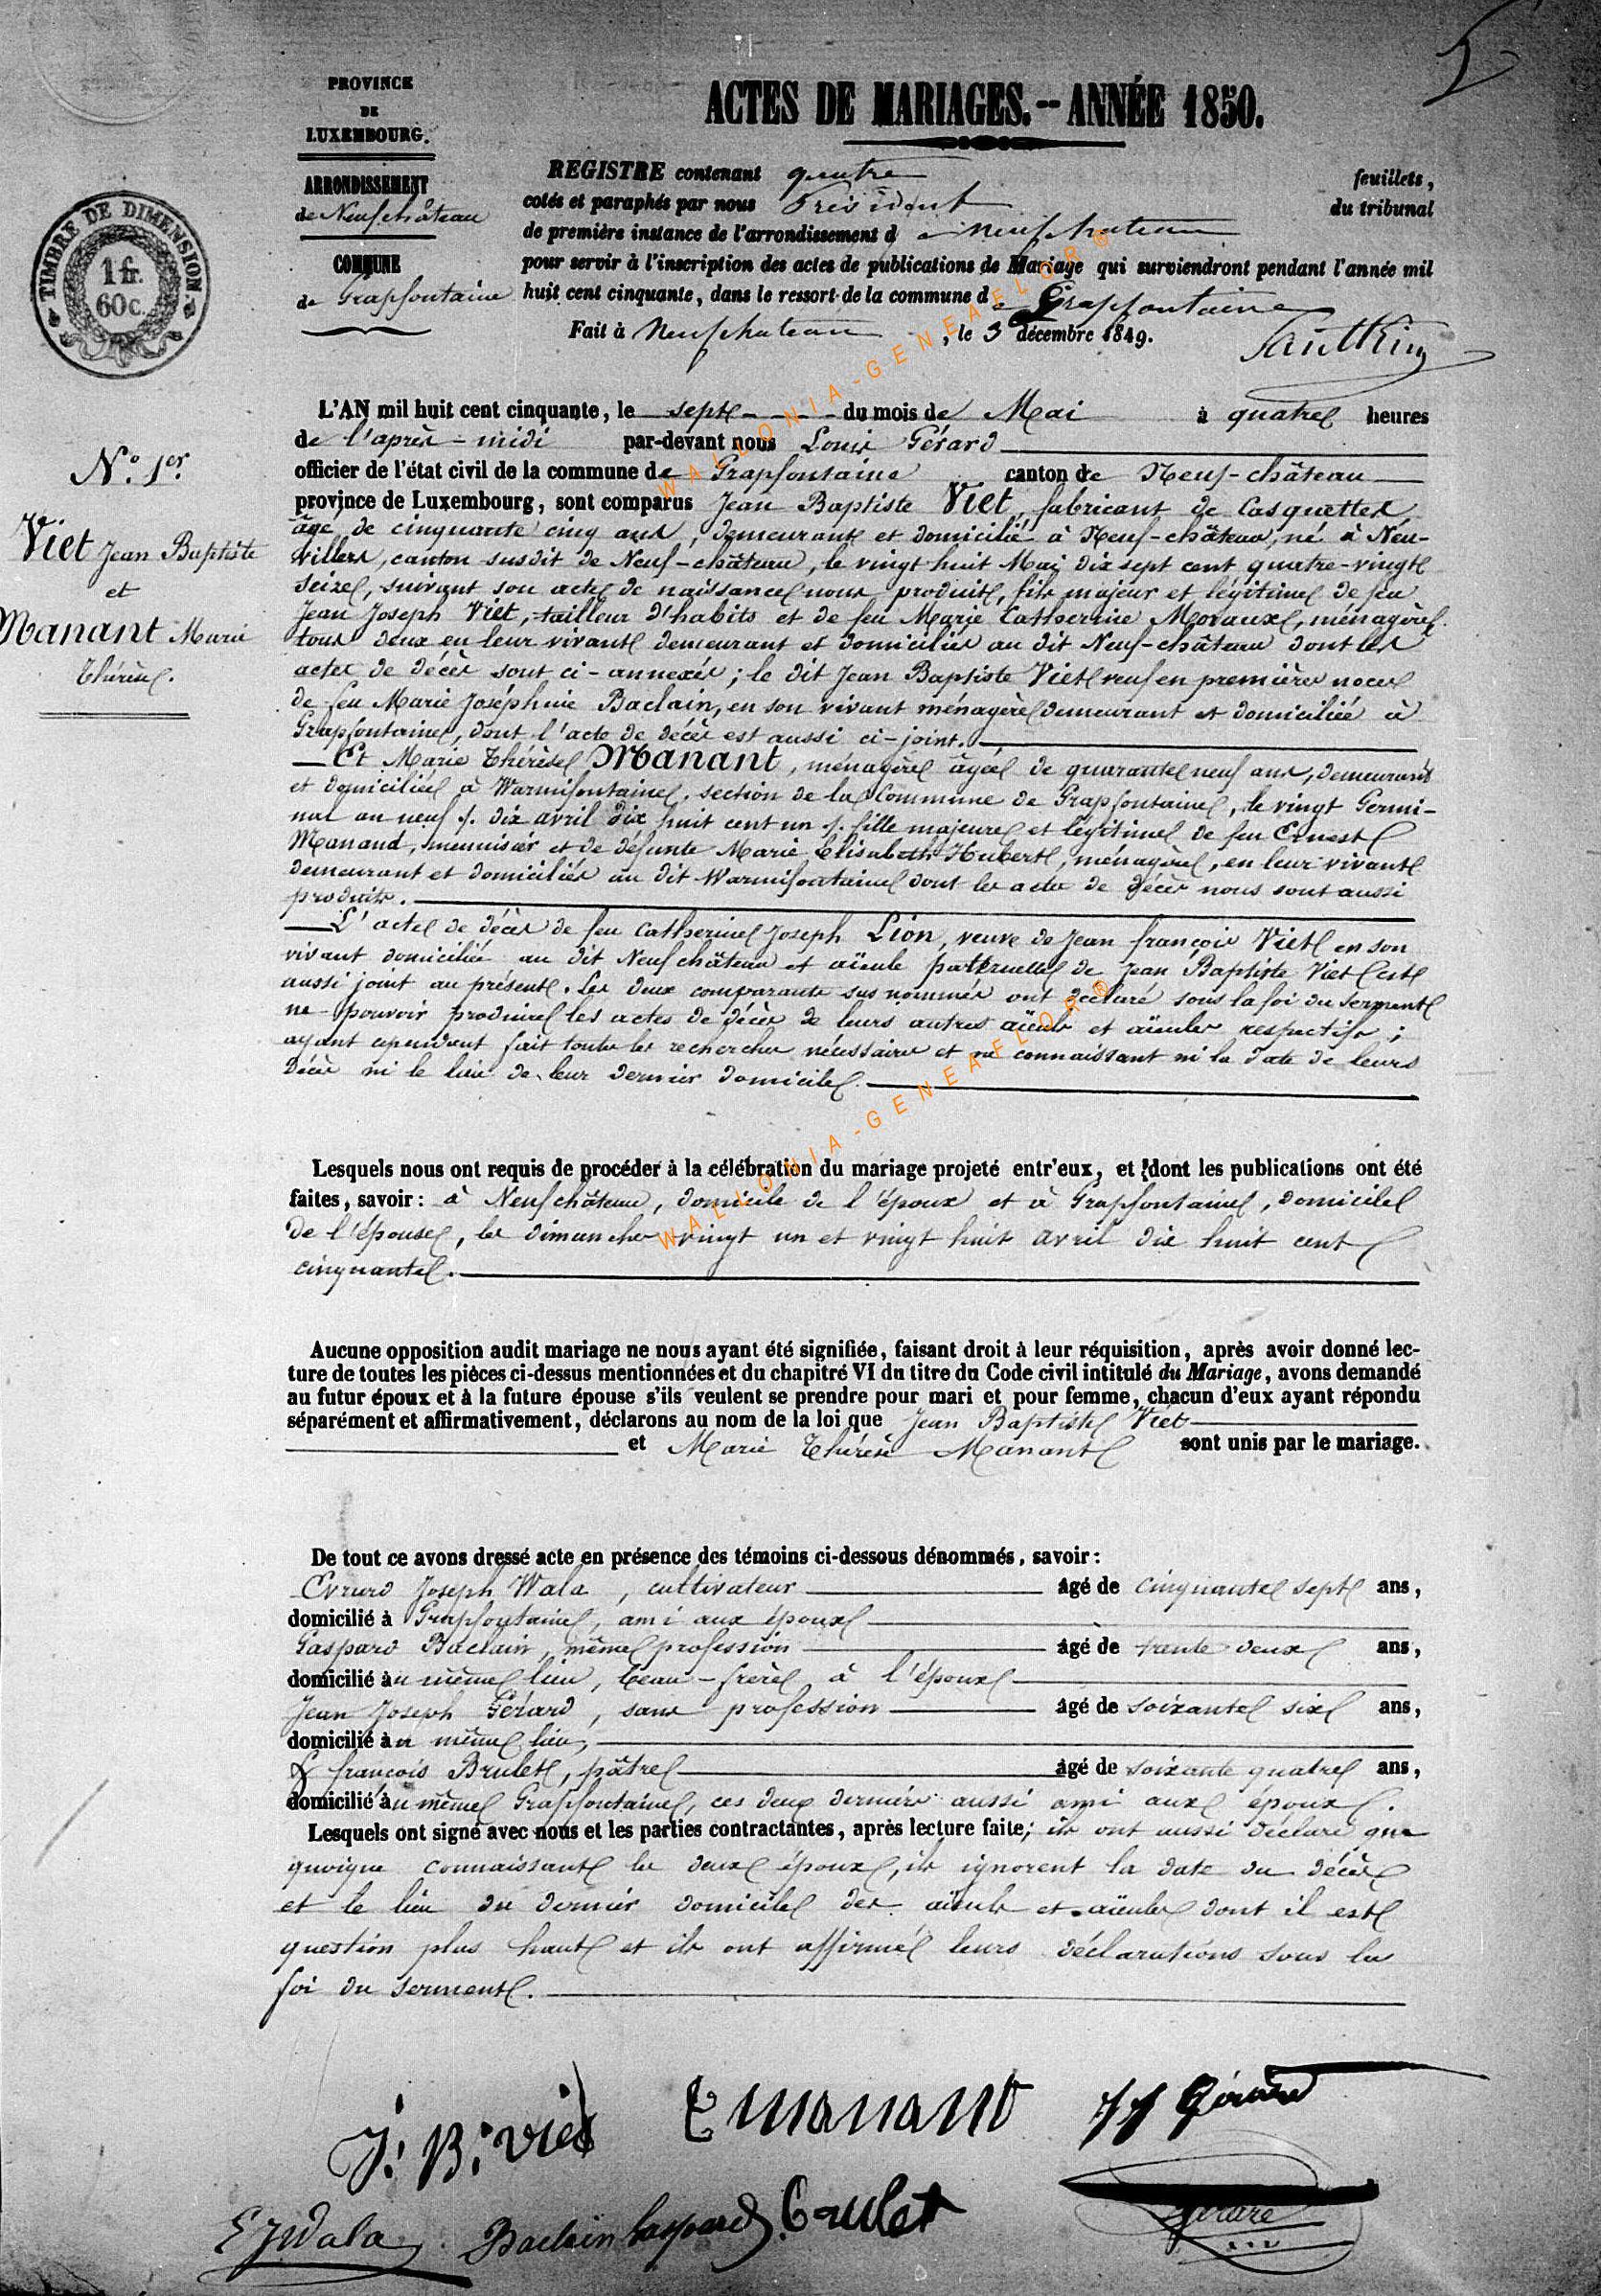 PROVINCE
DE
LUXEMBOURG.
ARRONDISSEMENT
de Neufchâteau
COMMUNE
de Grapfontaine
TIMBRE DE DIMENSION
1 fr.
60 c.
ACTES DE MARIAGES. -- ANNÉE 1850.
REGISTRE contenant quatre feuillets,
cotés et paraphés par nous Président du tribunal
de première instance de l'arrondissement de Neufchateau
pour servir à l'inscription des actes de publications de Mariage qui surviendront pendant l'année mil
huit cent cinquante, dans le ressort de la commune de Grapfontaine
Fait à Neufchateau, le 3 décembre 1849.
N.º 1er
Viet Jean Baptiste
et
Manant Marie
Thérèse.
L'AN mil huit cent cinquante, le sept du mois de Mai à quatre heures
de l'après-midi par-devant nous Louis Gérard
officier de l'état civil de la commune de Grapfontaine canton de Neuf-château
province de Luxembourg, sont comparus Jean Baptiste Viet, fabricant de Casquettes
âgé de cinquante cinq ans, demeurant et domicilié à Neuf-château, né à Neu-
villers, canton susdit de Neuf-château, le vingt huit Mai dix sept cent quatre-vingt
seize, suivant son acte de naissance nous produit, fils majeur et légitime de feu
Jean Joseph Viet, tailleur d'habits et de feu Marie Catherine Moraux, ménagère
tous deux en leur vivant demeurant et domiciliés au dit Neuf-château dont les
actes de décès sont ci-annexés; le dit Jean Baptiste Viet veuf en premières noces
de feu Marie Joséphine Baclain, en son vivant ménagère demeurant et domiciliée à
Grapfontaine, dont l'acte de décès est aussi ci-joint.
Et Marie Thérèse Manant, ménagère âgée de quarante neuf ans, demeurant
et domiciliée à Warmifontaine, section de la Commune de Grapfontaine, le vingt Germi-
nal an neuf /. dix avril dix huit cent un /. fille majeure et légitime de feu Ernest
Manand, menuisier et de défunte Marie Elisabeth Hubert, ménagère, en leur vivant
demeurant et domiciliés au dit Warmifontaine dont les actes de décès nous sont aussi
produits.
L'acte de décès de feu Catherine Joseph Lion, veuve de Jean françois Viet en son
vivant domiciliée au dit Neufchâteau et aïeule paternelle de Jean Baptiste Viet est
aussi joint au présent. Les deux comparants sus nommés ont déclaré sous la foi du serment
ne pouvoir produire les actes de décès de leurs autres aïeuls et aïeules respectifs;
ayant cependant fait toutes les recherches nécessaires et ne connaissant ni la date de leurs
décès ni le lieu de leur dernier domicile.
Lesquels nous ont requis de procéder à la célébration du mariage projeté entr'eux, et dont les publications ont été
faites, savoir: à Neufchâteau, domicile de l'époux et à Grapfontaine, domicile
de l'épouse, les dimanches vingt un et vingt huit avril dix huit cent
cinquante.
Aucune opposition audit mariage ne nous ayant été signifiée, faisant droit à leur réquisition, après avoir donné lec-
ture de toutes les pièces ci-dessus mentionnées et du chapitre VI du titre du Code civil intitulé du Mariage, avons demandé
au futur époux et à la future épouse s'ils veulent se prendre pour mari et pour femme, chacun d'eux ayant répondu
séparément et affirmativement, déclarons au nom de la loi que Jean Baptiste Viet
et Marie Thérèse Manant sont unis par le mariage.
De tout ce avons dressé acte en présence des témoins ci-dessous dénommés, savoir:
Evrard Joseph Wala, cultivateur âgé de cinquante sept ans,
domicilié à Grapfontaine, ami aux époux
Gaspard Baclain, même profession âgé de trente deux ans,
domicilié au même lieu, beau-frère à l'époux
Jean Joseph Gérard, sans profession âgé de soixante six ans,
domicilié au même lieu,
& françois Brulet, pâtre âgé de soixante quatre ans,
domicilié au même Grapfontaine, ces deux derniers aussi ami aux époux.
Lesquels ont signé avec nous et les parties contractantes, après lecture faite; ils ont aussi déclaré que
quoique connaissant les deux époux, ils ignorent la date du décès
et le lieu du dernier domicile des aïeuls et aïeules dont il est
question plus haut et ils ont affirmé leurs déclarations sous la
foi du serment.
J. B. Viet
manant
JJ Gérard
EJ Wala
Baclain Gaspard
Brulet
Gérard
WALLONIA-GENEAFLOR®
WALLONIA-GENEAFLOR®